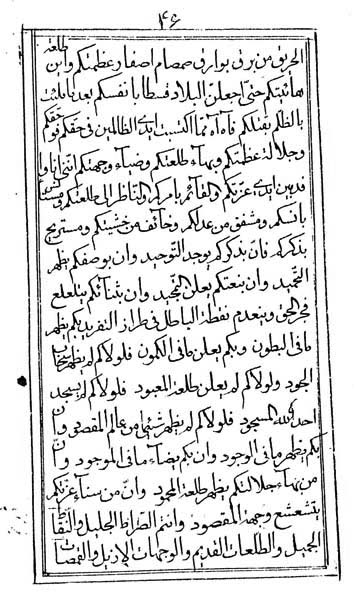 ٤٦
الحريق من برق بوارق صمصام اصفار عظمتكم وابن طلعة
هائيتكم حتى اجعلن البلاد قسطا بانفسكم بعد ما ملئت
بالظلم بقتلكم فآه آه مما اكتسبت ايدي الظالمين في حقكم فو حقكم
وجلالة عظمتكم وبهاء طلعتكم وضياء وجهتكم انني انا
فدبين ايدي عزتكم والقائم بامركم والناظر الى طلعتكم ومستانس
بانسكم ومشفق من عدلكم وخائف من خشيتكم ومستريح
بذكركم فان بذكركم يوجد التوحيد وان بوصفكم يظهر
التحميد وان بنعتكم يعلن التمجيد وان بثنائكم يتلعلع
فجر الحق وينعدم نقطة الباطل في طراز التفريد بكم يظهر
ما في البطون وبكم يعلن ما في الكمون فلولاكم لم يظهر سبحان
الجود ولولاكم لم يعلن طلعة المعبود فلولاكم لم يسجد
احد لله المسجود فلولاكم لم يظهر شيئا من عالم المقصود وان
بكم يظهر ما في الوجود وان بكم يضاء ما في الموجود وان
من بهاء جلالتكم يظهر طلعة المحمود وان من سناء عزتكم
يتشعشع وجهة المقصود وانتم الصراط الجليل والنقاط
الجميل والطلعات القديم والوجهات الازيل والقمصات